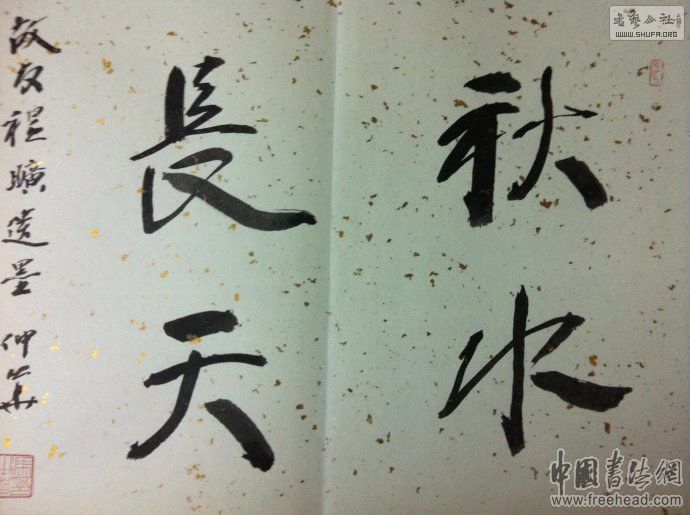 秋水
長天
故友程曠遺墨 仲華
书艺公社
WWW.SHUFA.ORG
中國書法網
www.freehead.com